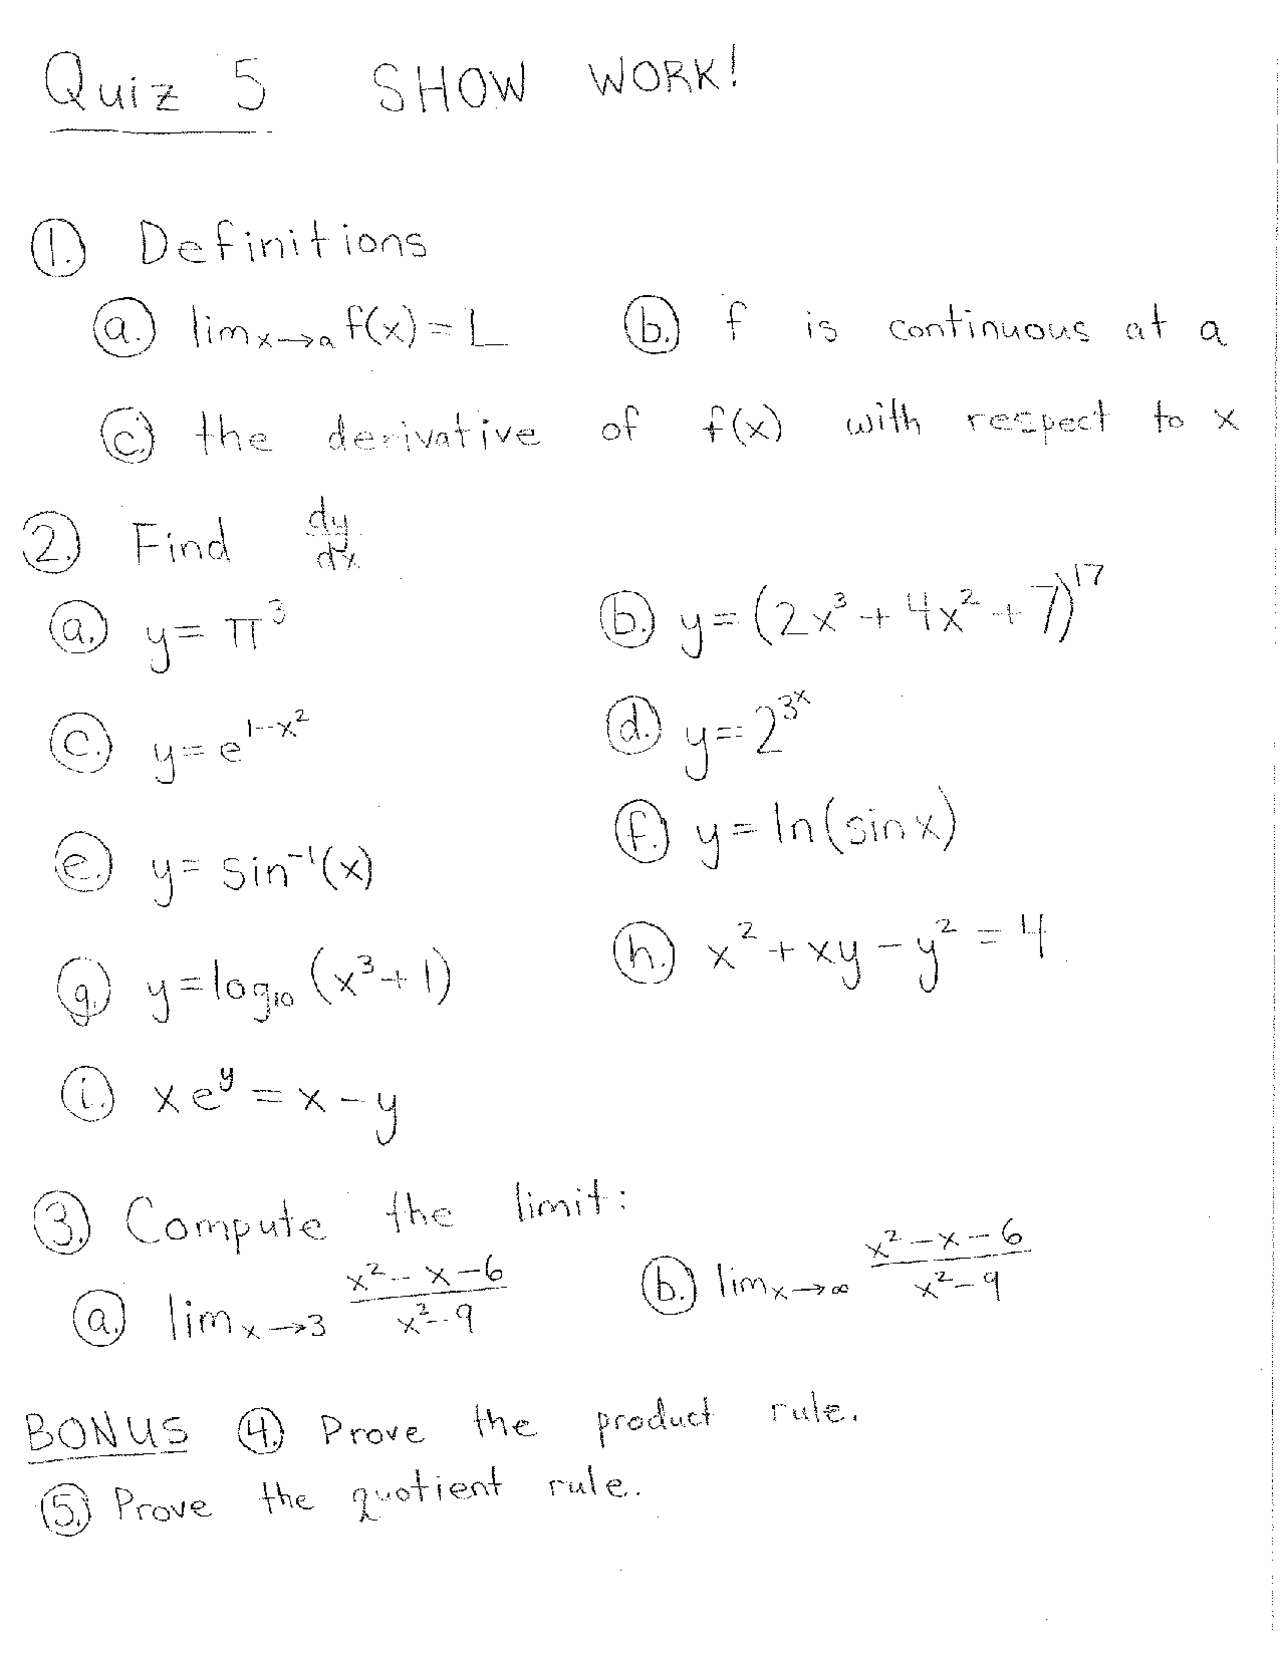 Quiz 5 SHOW WORK!
1. Definitions
a. lim x→a f(x) = L b. f is continuous at a
c. the derivative of f(x) with respect to x
2. Find dy/dx
a. y = π³ b. y = (2x³ + 4x² + 7)¹⁷
c. y = e^(1-x²) d. y = 2^(3^x)
e. y = sin⁻¹(x) f. y = ln(sinx)
g. y = log₁₀ (x³ + 1) h. x² + xy - y² = 4
i. xe^y = x - y
3. Compute the limit:
a. lim x→3 (x² - x - 6)/(x² - 9) b. lim x→∞ (x² - x - 6)/(x² - 9)
BONUS 4. Prove the product rule.
5. Prove the quotient rule.